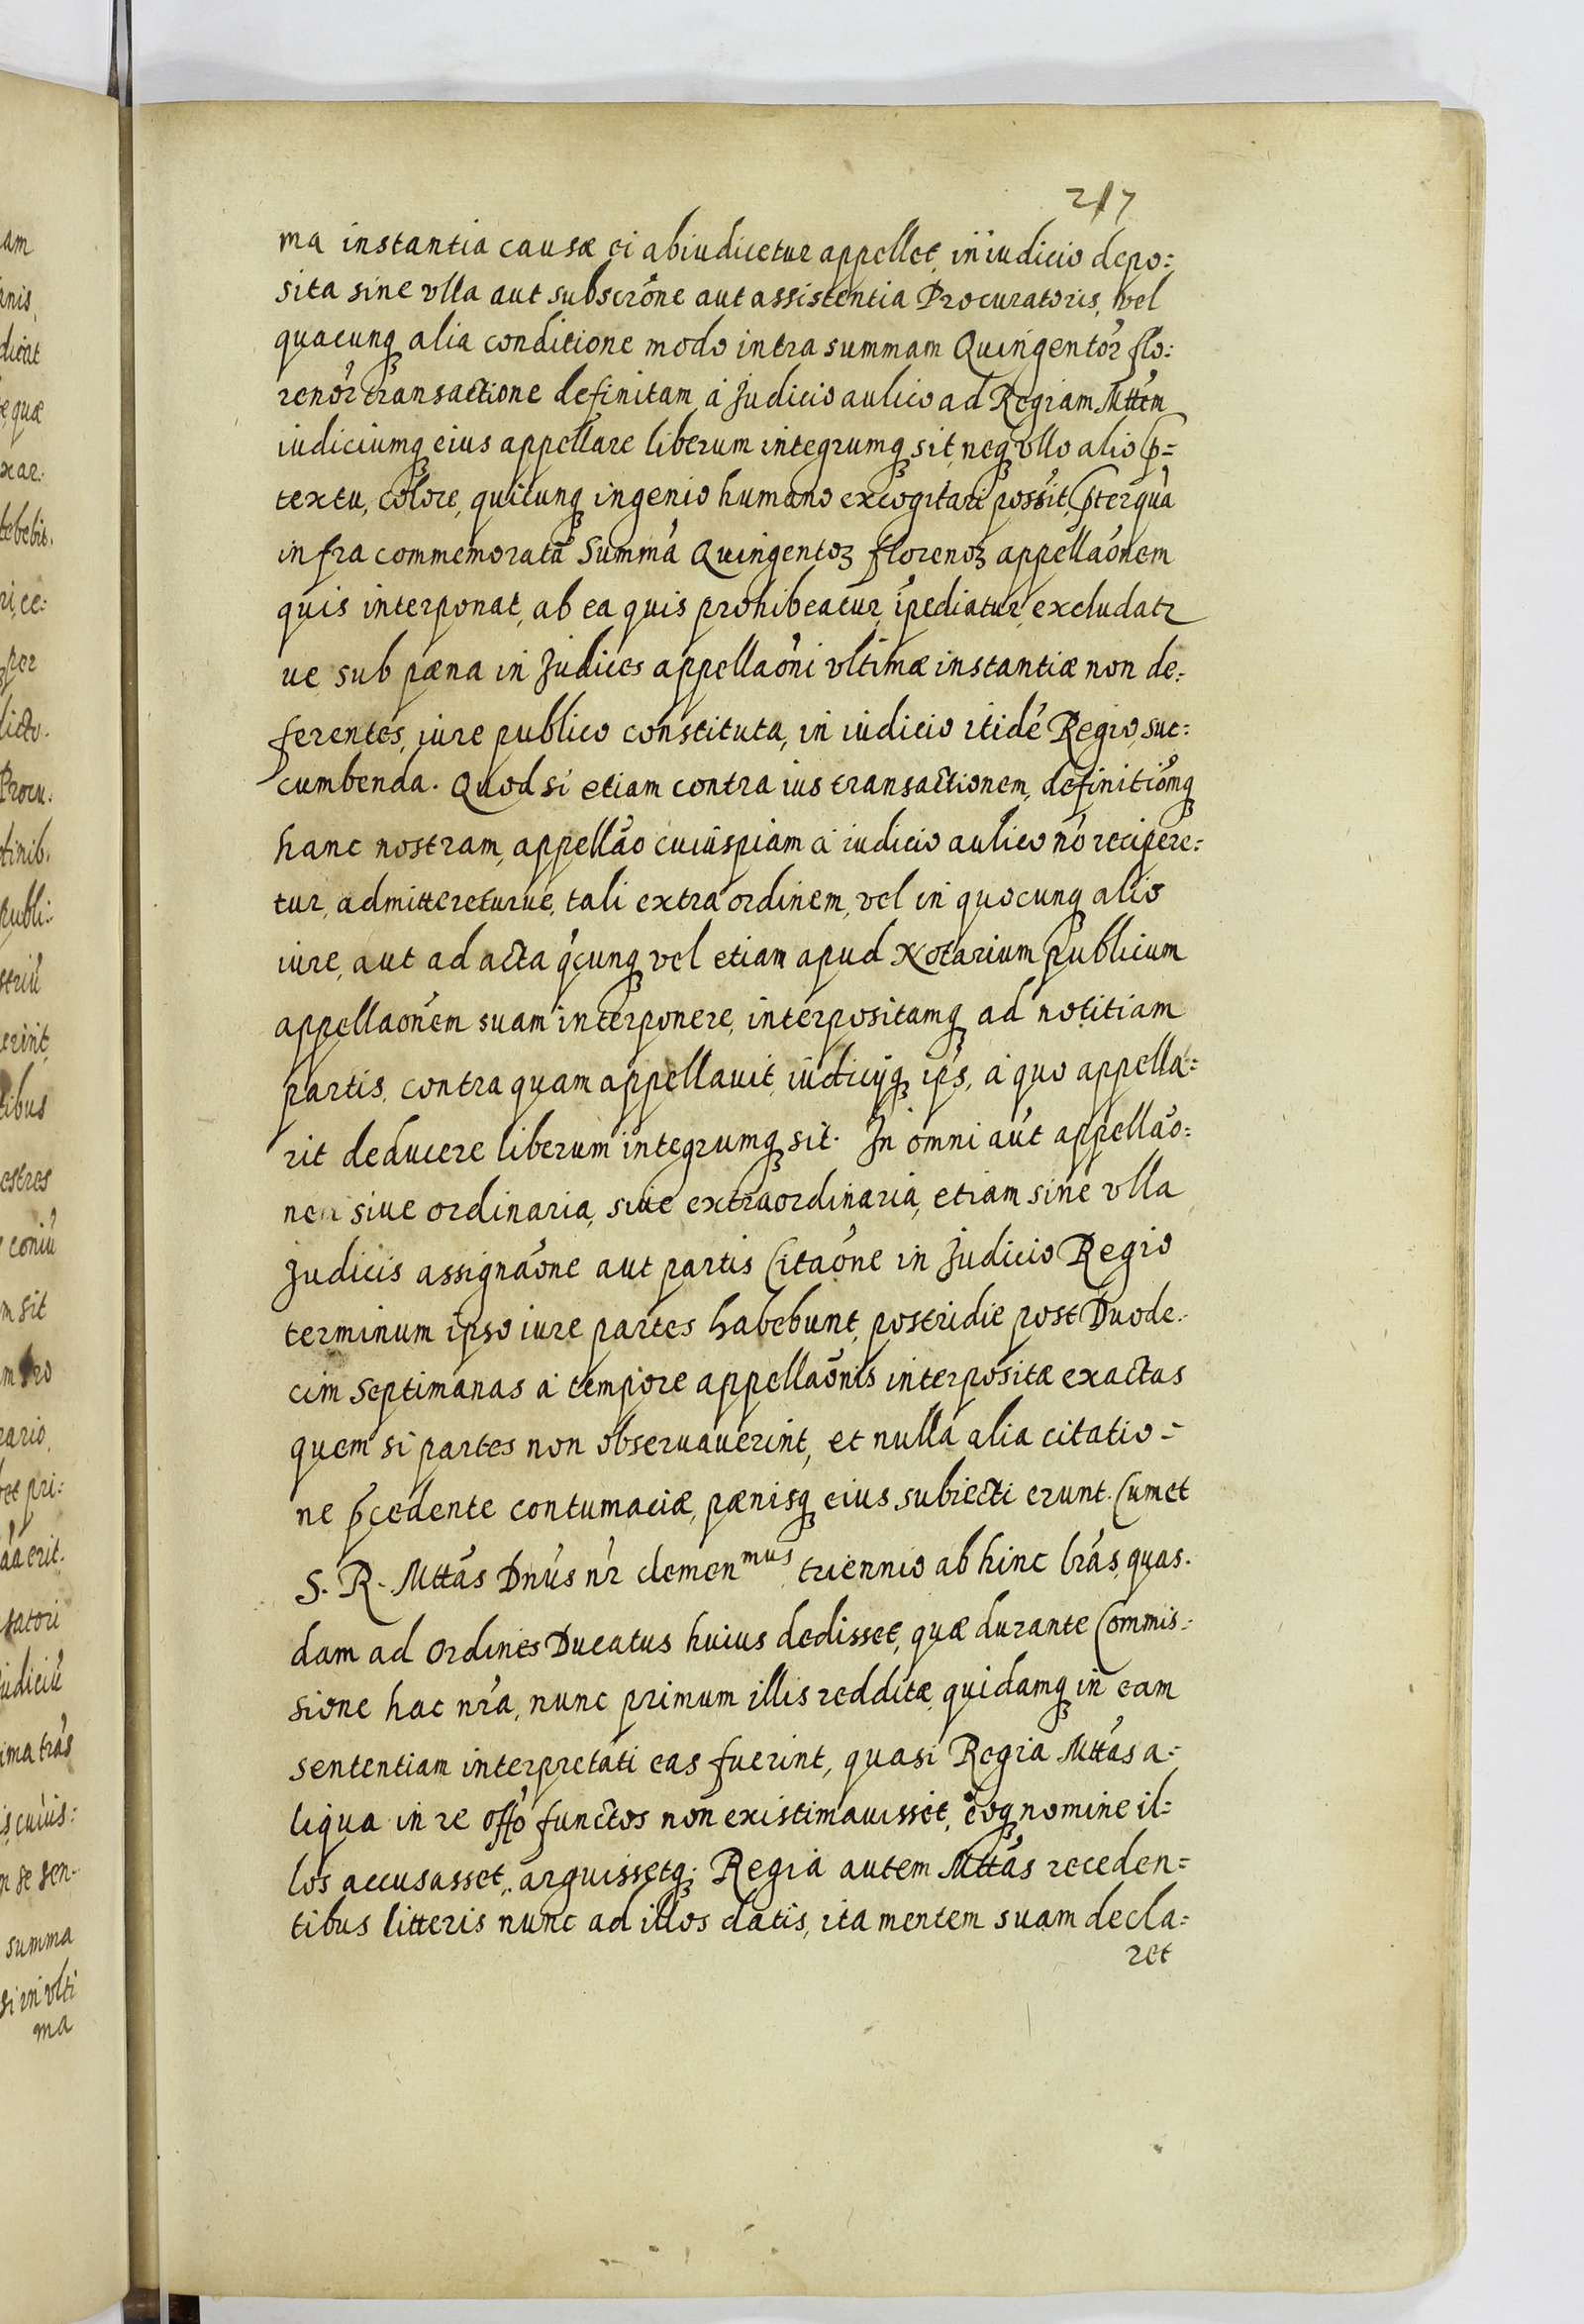 217
ma instantia causæ ei abiudicetur appellet, in iudicio depo:
sita sine vlla aut subscrõne aut assistentia Procuratoris, vel
quacunqꝫ alia conditione modo intra summam Quingentor̃ flo:
renor̃ transactione definitam à Judicio aulico ad Regiam Mttẽm
iudiciumqꝫ eius appellare liberum integrumqꝫ sit, neqꝫ vllo alio p̃=
textu, colore, quicunqꝫ ingenio humano excogitari possit, p̃terquã
infra commemoratã Summã Quingentoꝝ florenoꝝ appellaõnem
quis interponat, ab ea quis prohibeatur, ĩpediatur, excludatr
ue sub pæna in Judices appellaõni vltimæ instantiæ non de:
ferentes, iure publico constituta, in iudicio itidẽ Regio, suc:
cumbenda. Quod si etiam contra ius transactionem, definitiõmqꝫ
hanc nostram, appellão cuiuspiam à iudicio aulico nõ recipere:
tur, admittereturue, tali extra ordinem, vel in quocunqꝫ alio
iure, aut ad acta q̃cunqꝫ vel etiam apud Notarium Publicum
appellaõnem suam interponere, interpositamqꝫ ad notitiam
partis, contra quam appellauit, iudicijqꝫ ip̃s, à quo appella:
rit deducere liberum integrumqꝫ sit. In omni aũt appellão:
ne siue ordinaria, siue extraordinaria, etiam sine vlla
Judicis assignãone aut partis Citaõne in Judicio Regio
terminum ipso iure partes habebunt, postridie post Duode:
cim Septimanas à tempore appellaõnis interpositæ exactas
quem si partes non obseruauerint, et nulla alia citatio=
ne p̃cedente contumaciæ, pænisqꝫ eius subiecti erunt. Cum et
S. R. Mttãs Dnũs nr̃ clemen^mus triennio ab hinc lrãs, quas:
dam ad Ordines Ducatus huius dedisset, quæ durante Commis:
sione hac nrã, nunc primum illis redditæ, quidamqꝫ in eam
sententiam interpretati eas fuerint, quasi Regia Mttãs a:
liqua in re offõ functos non existimauisset, eoqꝫ nomine il=
los accusasset, arguissetqꝫ: Regia autem Mttãs receden=
tibus litteris nunc ad illos datis, ita mentem suam decla:
ret